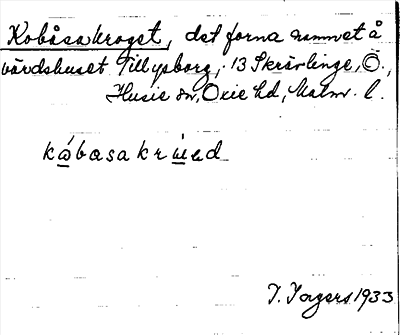 Kobåsakroget, det forna namnet å
värdshuset Tillysborg, 13 Skrävlinge, Ö.,
Husie sn, Oxie hd, Malm. l.
kåbasakrúəd
I. Ingers 1933